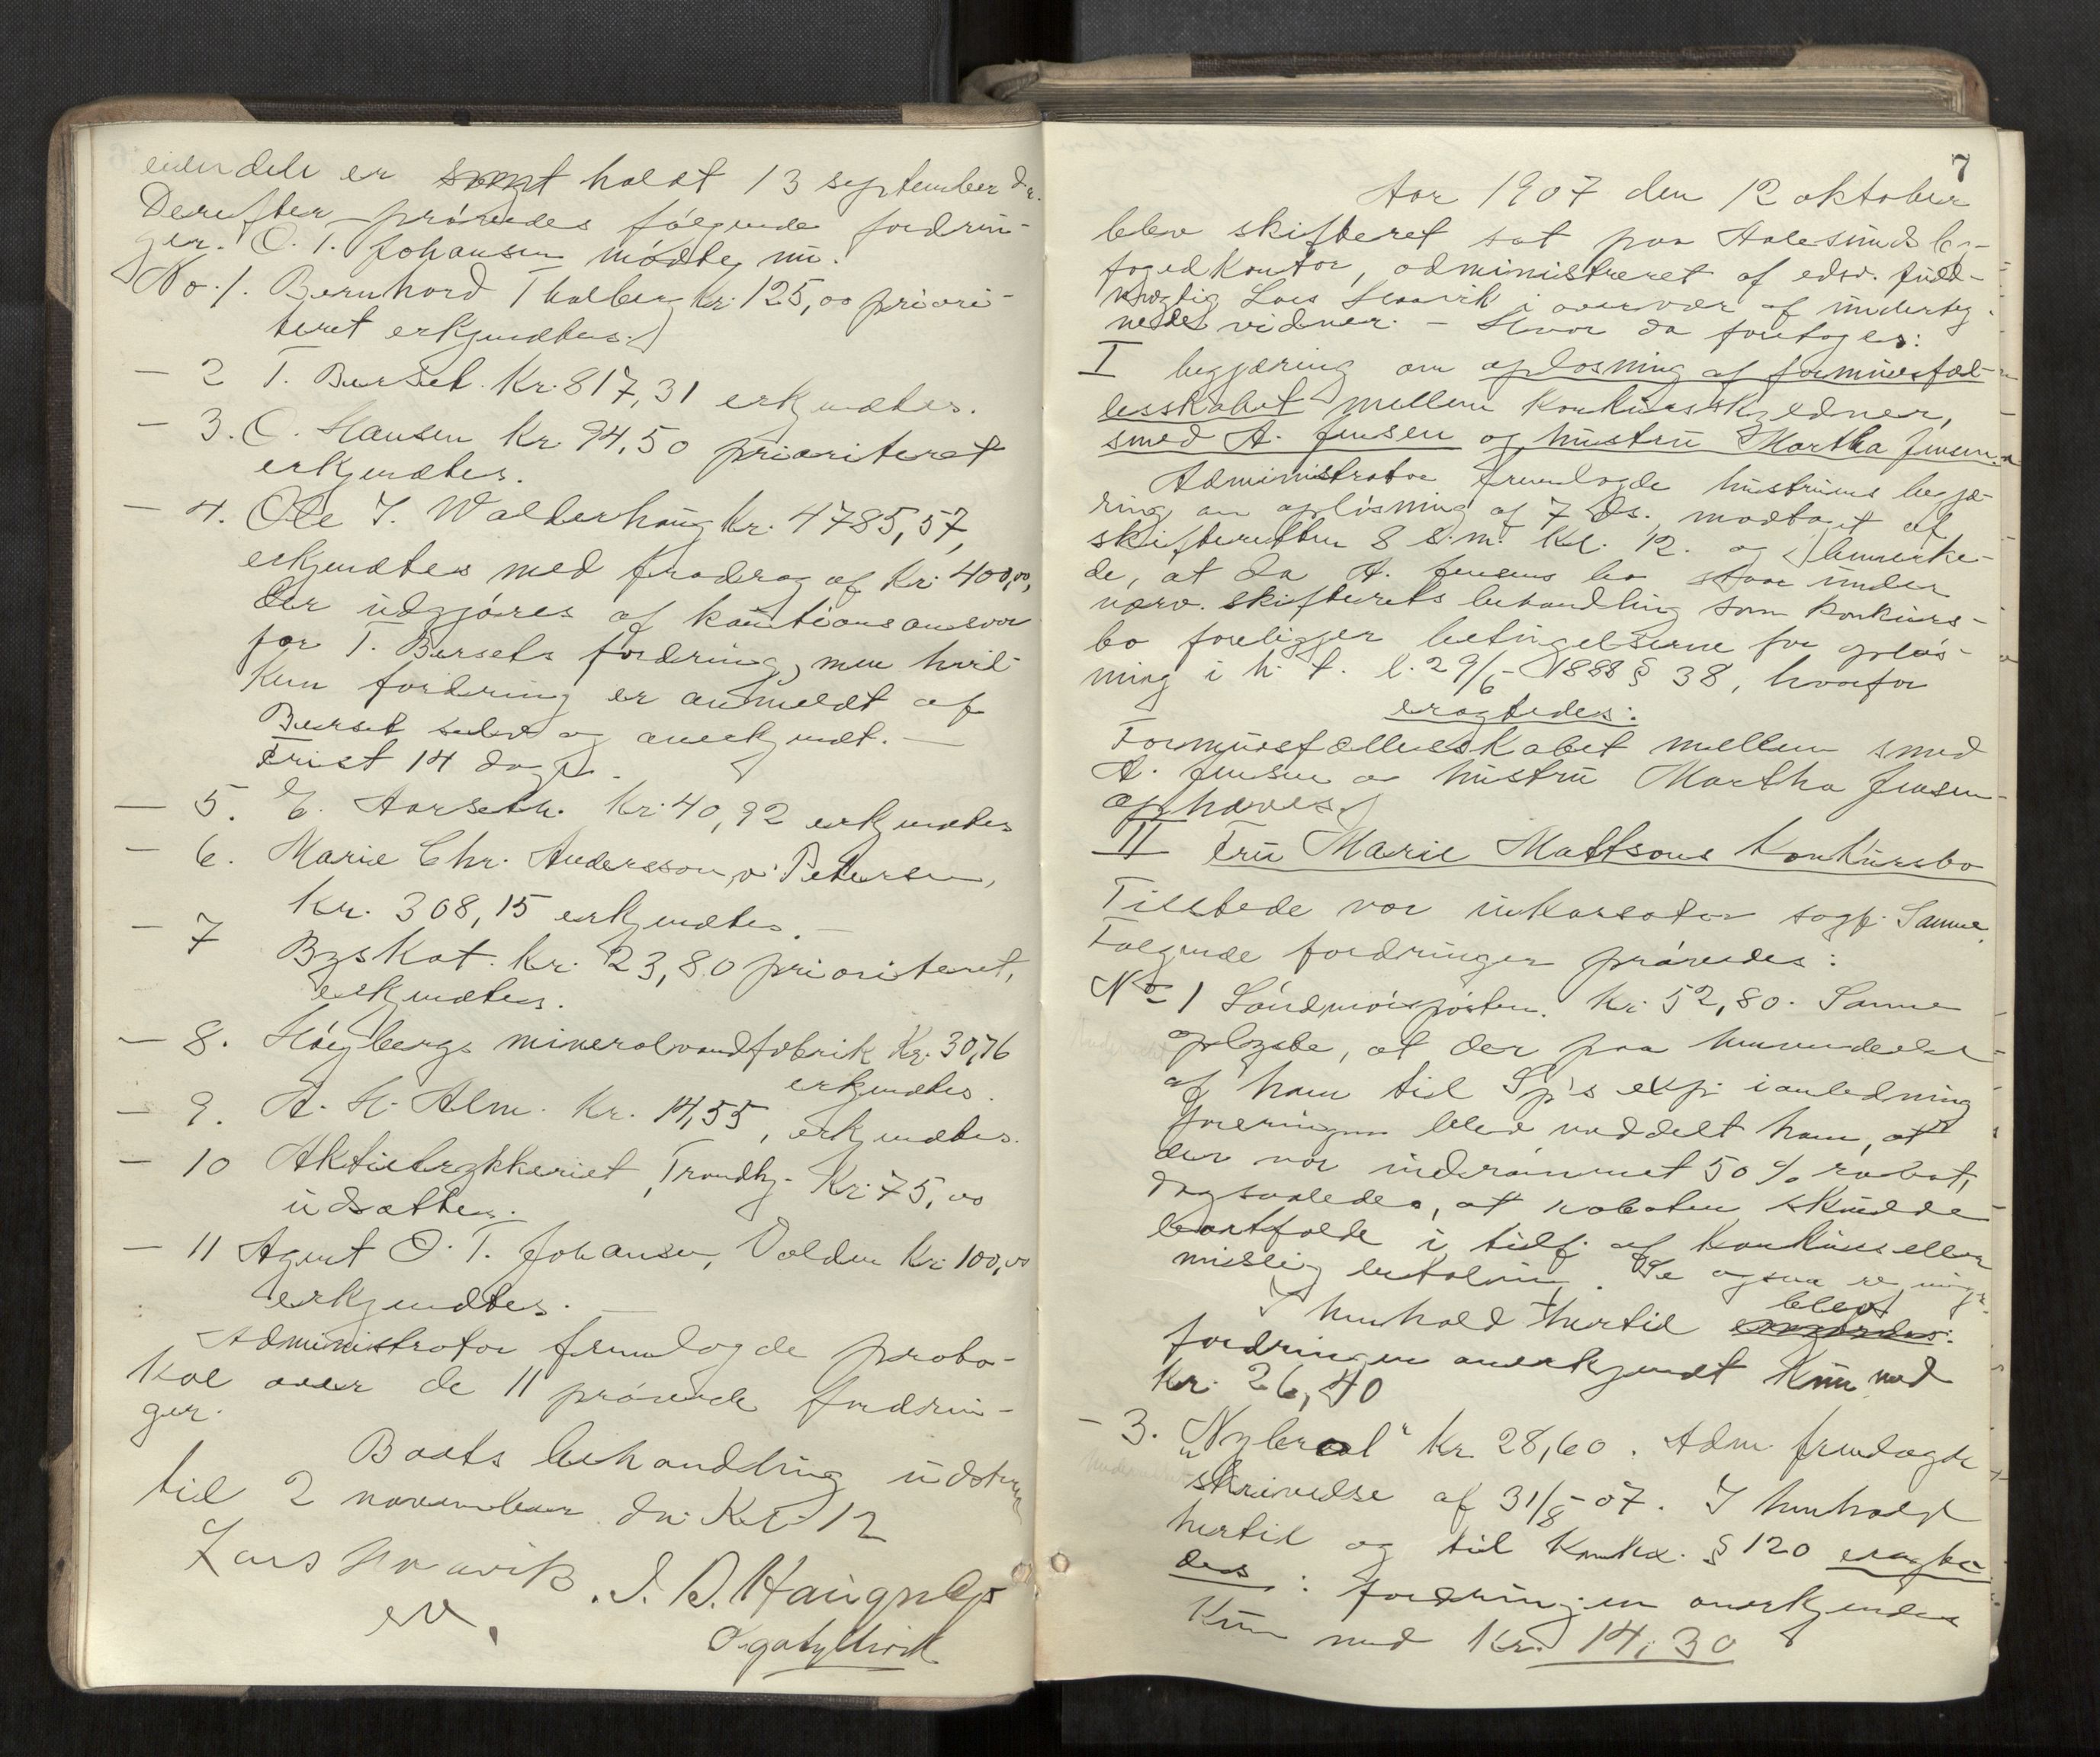 eiendele er holdt 13 september d.a.
Derefter prövedes fölgende fordrin-
ger. O. T. Johansen mödte nu.
No. 1. Bernhard Thalberg Kr. 125,00 priori-
teret erkjendtes.
- 2 T. Berset. Kr. 817,31 erkjendtes.
- 3. O. Hansen Kr. 94,50 prioriteret
erkjendtes.
- 4. Ole J. Walderhaug Kr. 4785,57,
erkjendtes med fradrag af Kr. 400,00,
der udgjöres af kautionsansvar
for T. Bersets fordring, men hvil-
ken fordring er anmeldt af
Berset selv og anerkjendt. -
Frist 14 dage.
- 5. E. Aarseth. Kr. 40,92 erkjendtes
- 6. Marie Chr. Andersson, Petersen,
Kr. 308,15 erkjendtes. -
- 7 Byskat. Kr. 23,80 prioriteret,
erkjendtes.
- 8. Höybergs mineralvandfabrik Kr. 30,76
erkjendtes.
- 9. A. H. Alm. Kr. 14,55, erkjendtes.
- 10 Aktietrykkeriet, Trondhj. Kr. 75,00
udsattes.
- 11 Agent O. T. Johansen, Volden Kr. 100,00
erkjendtes. -
Administrator fremlagde proto-
kol over de 11 prövede fordrin-
ger.
Boets behandling udsattes
til 2 november d.a. Kl. 12
Lars
7
Aar 1907 den 12 oktober
blev skifteret sat paa Aalesunds by-
fogedkontor, administreret af edsv. fuld-
mægtig Lars i overvær af underteg-
nede vidner. - Hvor da foretoges:
I begjæring om oplösning af formuesfæl-
lesskabet mellem konkursskyldner,
smed A. Jensen og hustru Martha Jensen.
Administrator fremlagde hustruens begjæ-
ring om oplösning af 7 ds., modtaget af
skifteretten 8 s.m. Kl. 12. og bemerke-
de, at da A. Jensens bo staar under
nærv. skifterets behandling som konkurs-
bo foreligger betingelserne for oplös-
ning i h. t. l. 29/6-1888 § 38, hvorfor
eragtedes:
Formuesfællesskabet mellem smed
A. Jensen og hustru Martha Jensen
ophæves.
II Fru Marie Mattsons Konkursbo
Tilstede var inkassator sagf. Sanne.
Fölgende fordringer prövedes:
No 1 Söndmörsposten. Kr. 52,80. Sanne
oplyste, at der paa henvendelse
af ham til Sp's exp. i anledning
fordringen blev meddelt ham, at
der var indrömmet 50% rabat,
dog saaledes, at rabaten skulde
bortfalde i tilf. af Konkurs eller
mislig betaling. Se ogsaa
I henhold hertil blev
fordringen anerkjendt kun med
Kr. 26,40
- 3. "Nybrot" Kr. 28,60. Adm. fremlagde
skrivelse af 31/8-07. I henhold
hertil og til Konkl. § 120 eragte-
des: fordringen anerkjendes
kun med Kr. 14,30